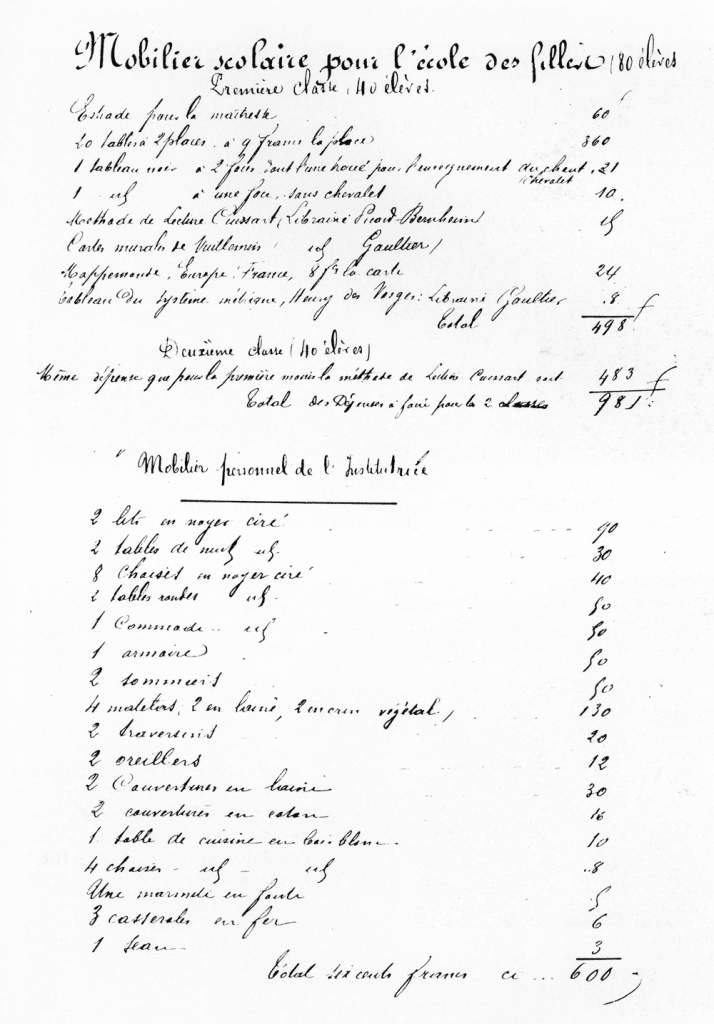 Mobilier scolaire pour l'école des filles (80 élèves
Première classe, 40 élèves.
Estrade pour la maîtresse 60 f
20 tables à 2 places à 9 francs la place 360
1 tableau noir à 2 faces dont l'une pour l'enseignement du chant, 21
chevalet
1 id à une face, sans chevalet 10.
Méthode de Lecture Cuissart, (Librairie Picard-Bernheim) 15
Cartes murales de Vuillemin (id Gaultier)
Mappemonde, Europe, France, 8 f la carte 24
Tableau du système métrique, Henry des Vosges: Librairie Gaultier .8 f
Total 498
Deuxième classe (40 élèves)
Même dépense que pour la première moins la méthode de Lecture Cuissart soit 483 f
Total des Dépenses à faire pour les 2 classes 981:
Mobilier personnel de l'Institutrice
2 lits en noyer ciré 90
2 tables de nuit id. 30
8 chaises en noyer ciré 40
2 tables rondes id. 50
1 Commode.. id 50
1 armoire 50
2 sommiers 50
4 matelas, (2 en laine, 2 en crin végétal) 130
2 traversins 20
2 oreillers 12
2 Couvertures en laine 30
2 couvertures en coton 16
1 table de cuisine en bois blanc 10
4 chaises - id - id ..8
Une marmite en fonte 5
3 casseroles en fer 6
1 seau 3
Total six cents francs ci ... 600